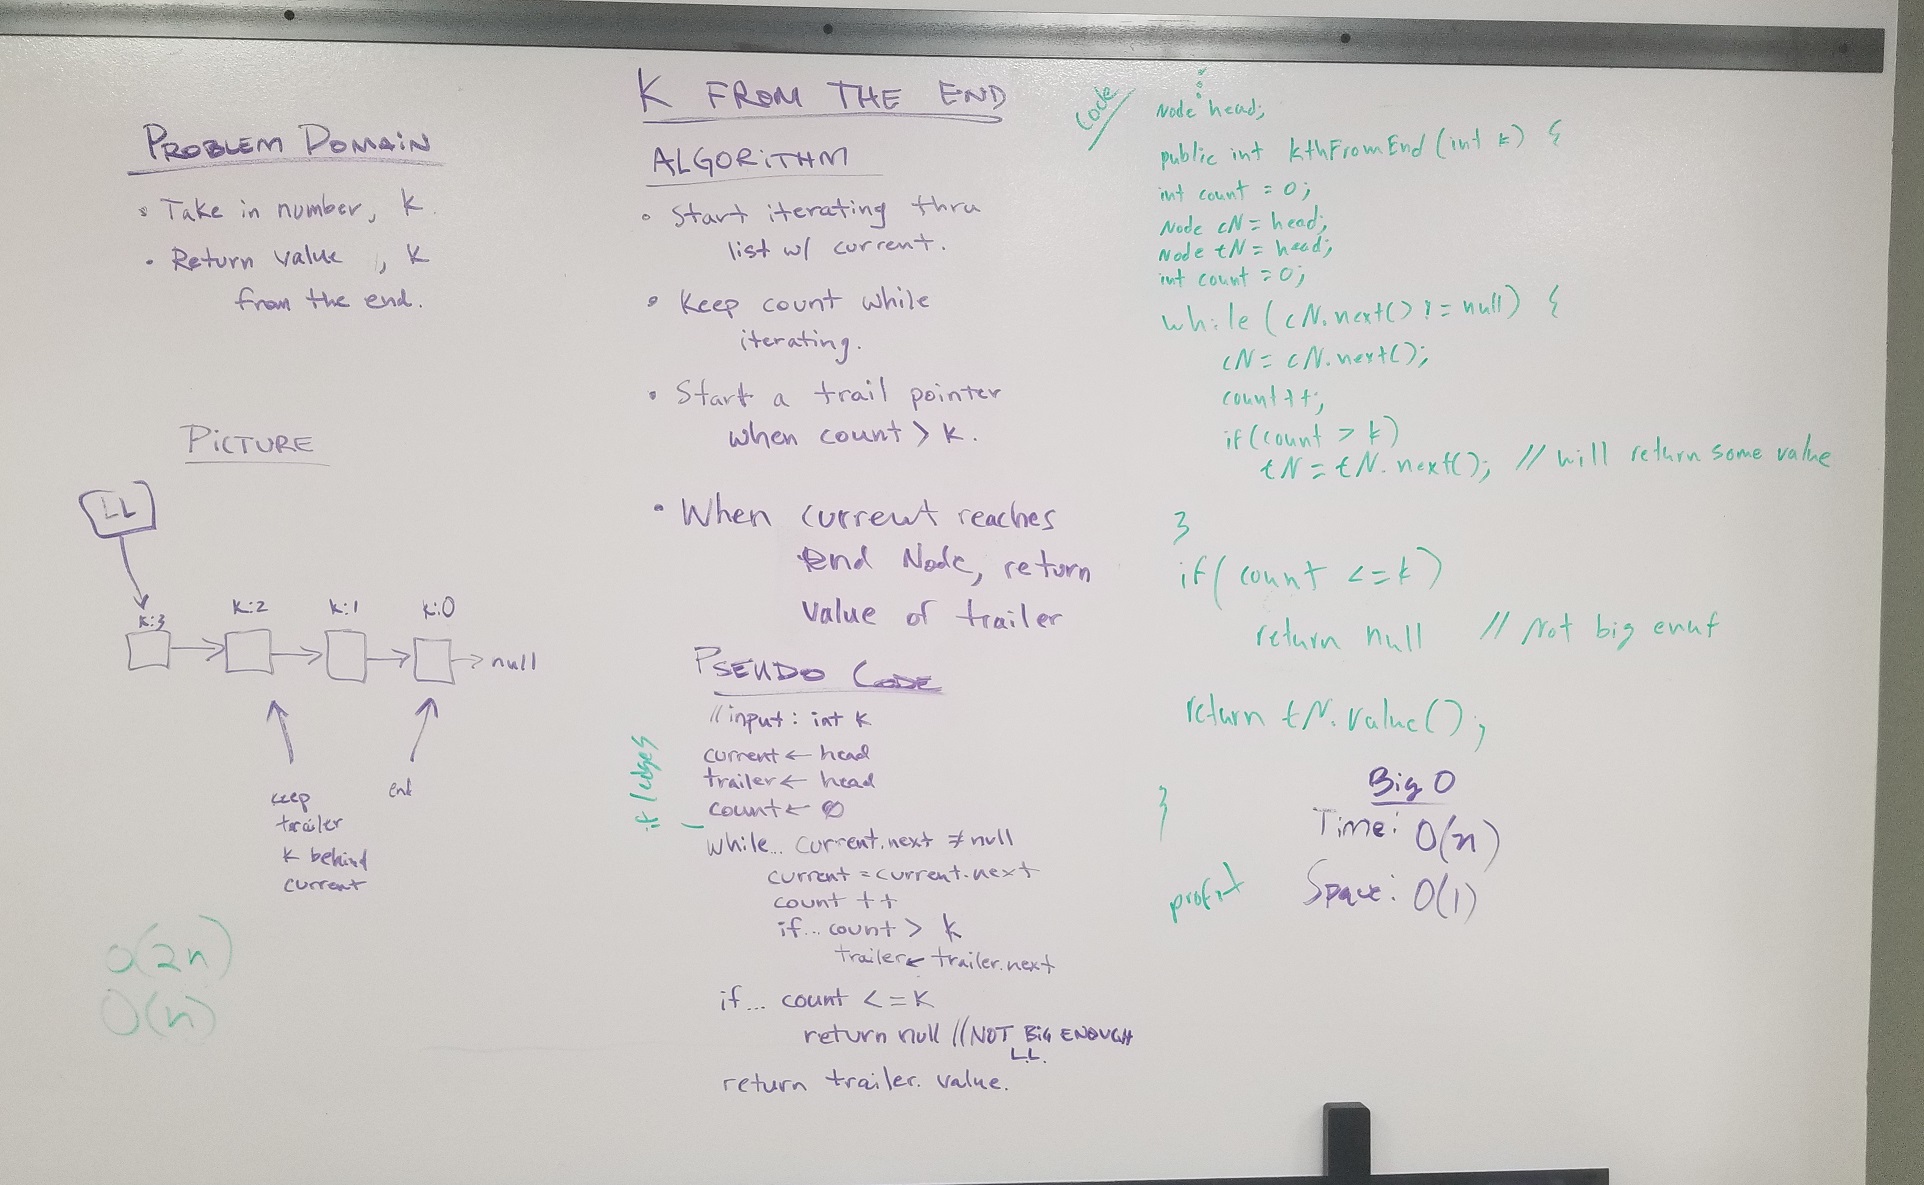 PROBLEM DOMAIN
• Take in number, K.
• Return value , K
from the end.
PICTURE
LL
K:3
K:2
K:1
K:0
null
keep
trailer
K behind
current
end
O(2n)
O(n)
K FROM THE END
ALGORITHM
• Start iterating thru
list w/ current.
• Keep count while
iterating.
• Start a trail pointer
when count > K.
• When current reaches
End Node, return
value of trailer
PSEUDO CODE
// input : int K
current ← head
trailer ← head
count ← 0
if / edges
while... current.next ≠ null
current = current.next
count ++
if... count > K
trailer ← trailer.next
if... count <= K
return null // NOT BIG ENOUGH
L.L.
return trailer. value.
Code
Node head;
public int kthFromEnd (int k) {
int count = 0;
Node cN = head;
Node tN = head;
int count = 0;
while (cN.next() != null) {
cN = cN.next();
count ++;
if (count > k)
tN = tN.next(); // will return some value
}
if (count <= k)
return null // Not big enuf
return tN.value();
}
profit
Big O
Time: O(n)
Space: O(1)